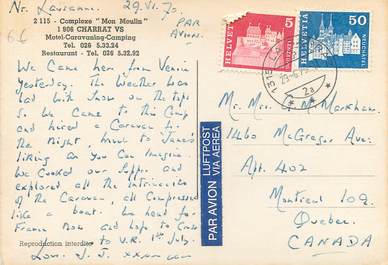 Nr. Lausanne. 29.VI.70.
2 115 - Complexe "Mon Moulin"
1 906 CHARRAT VS
Motel-Caravaning-Camping
Tel. 026 5.33.24
Restaurant - Tel. 026 5.32.92
PAR
AVION.
66
We came here from Venice
Yesterday. The Weather was
bad with Snow on the tops
so We Came to This Camp
and hired a Caravan for
the Night, Much to Jane's
liking As You Can Imagine.
We Cooked our Supper and
explored all the Intricacies
of the Caravan, all Compressed
like a boat. We head for
France Now and hope to Cross
to U.K. 1st July.
Love. J. J. xxxx
Reproduction interdite
PAR AVION LUFTPOST
VIA AEREA
HELVETIA 5
HELVETIA 50
2a
Mr. Mrs. J. M. Markham
1460 McGregor Ave.
Apt. 402
Montreal 109.
Quebec.
CANADA